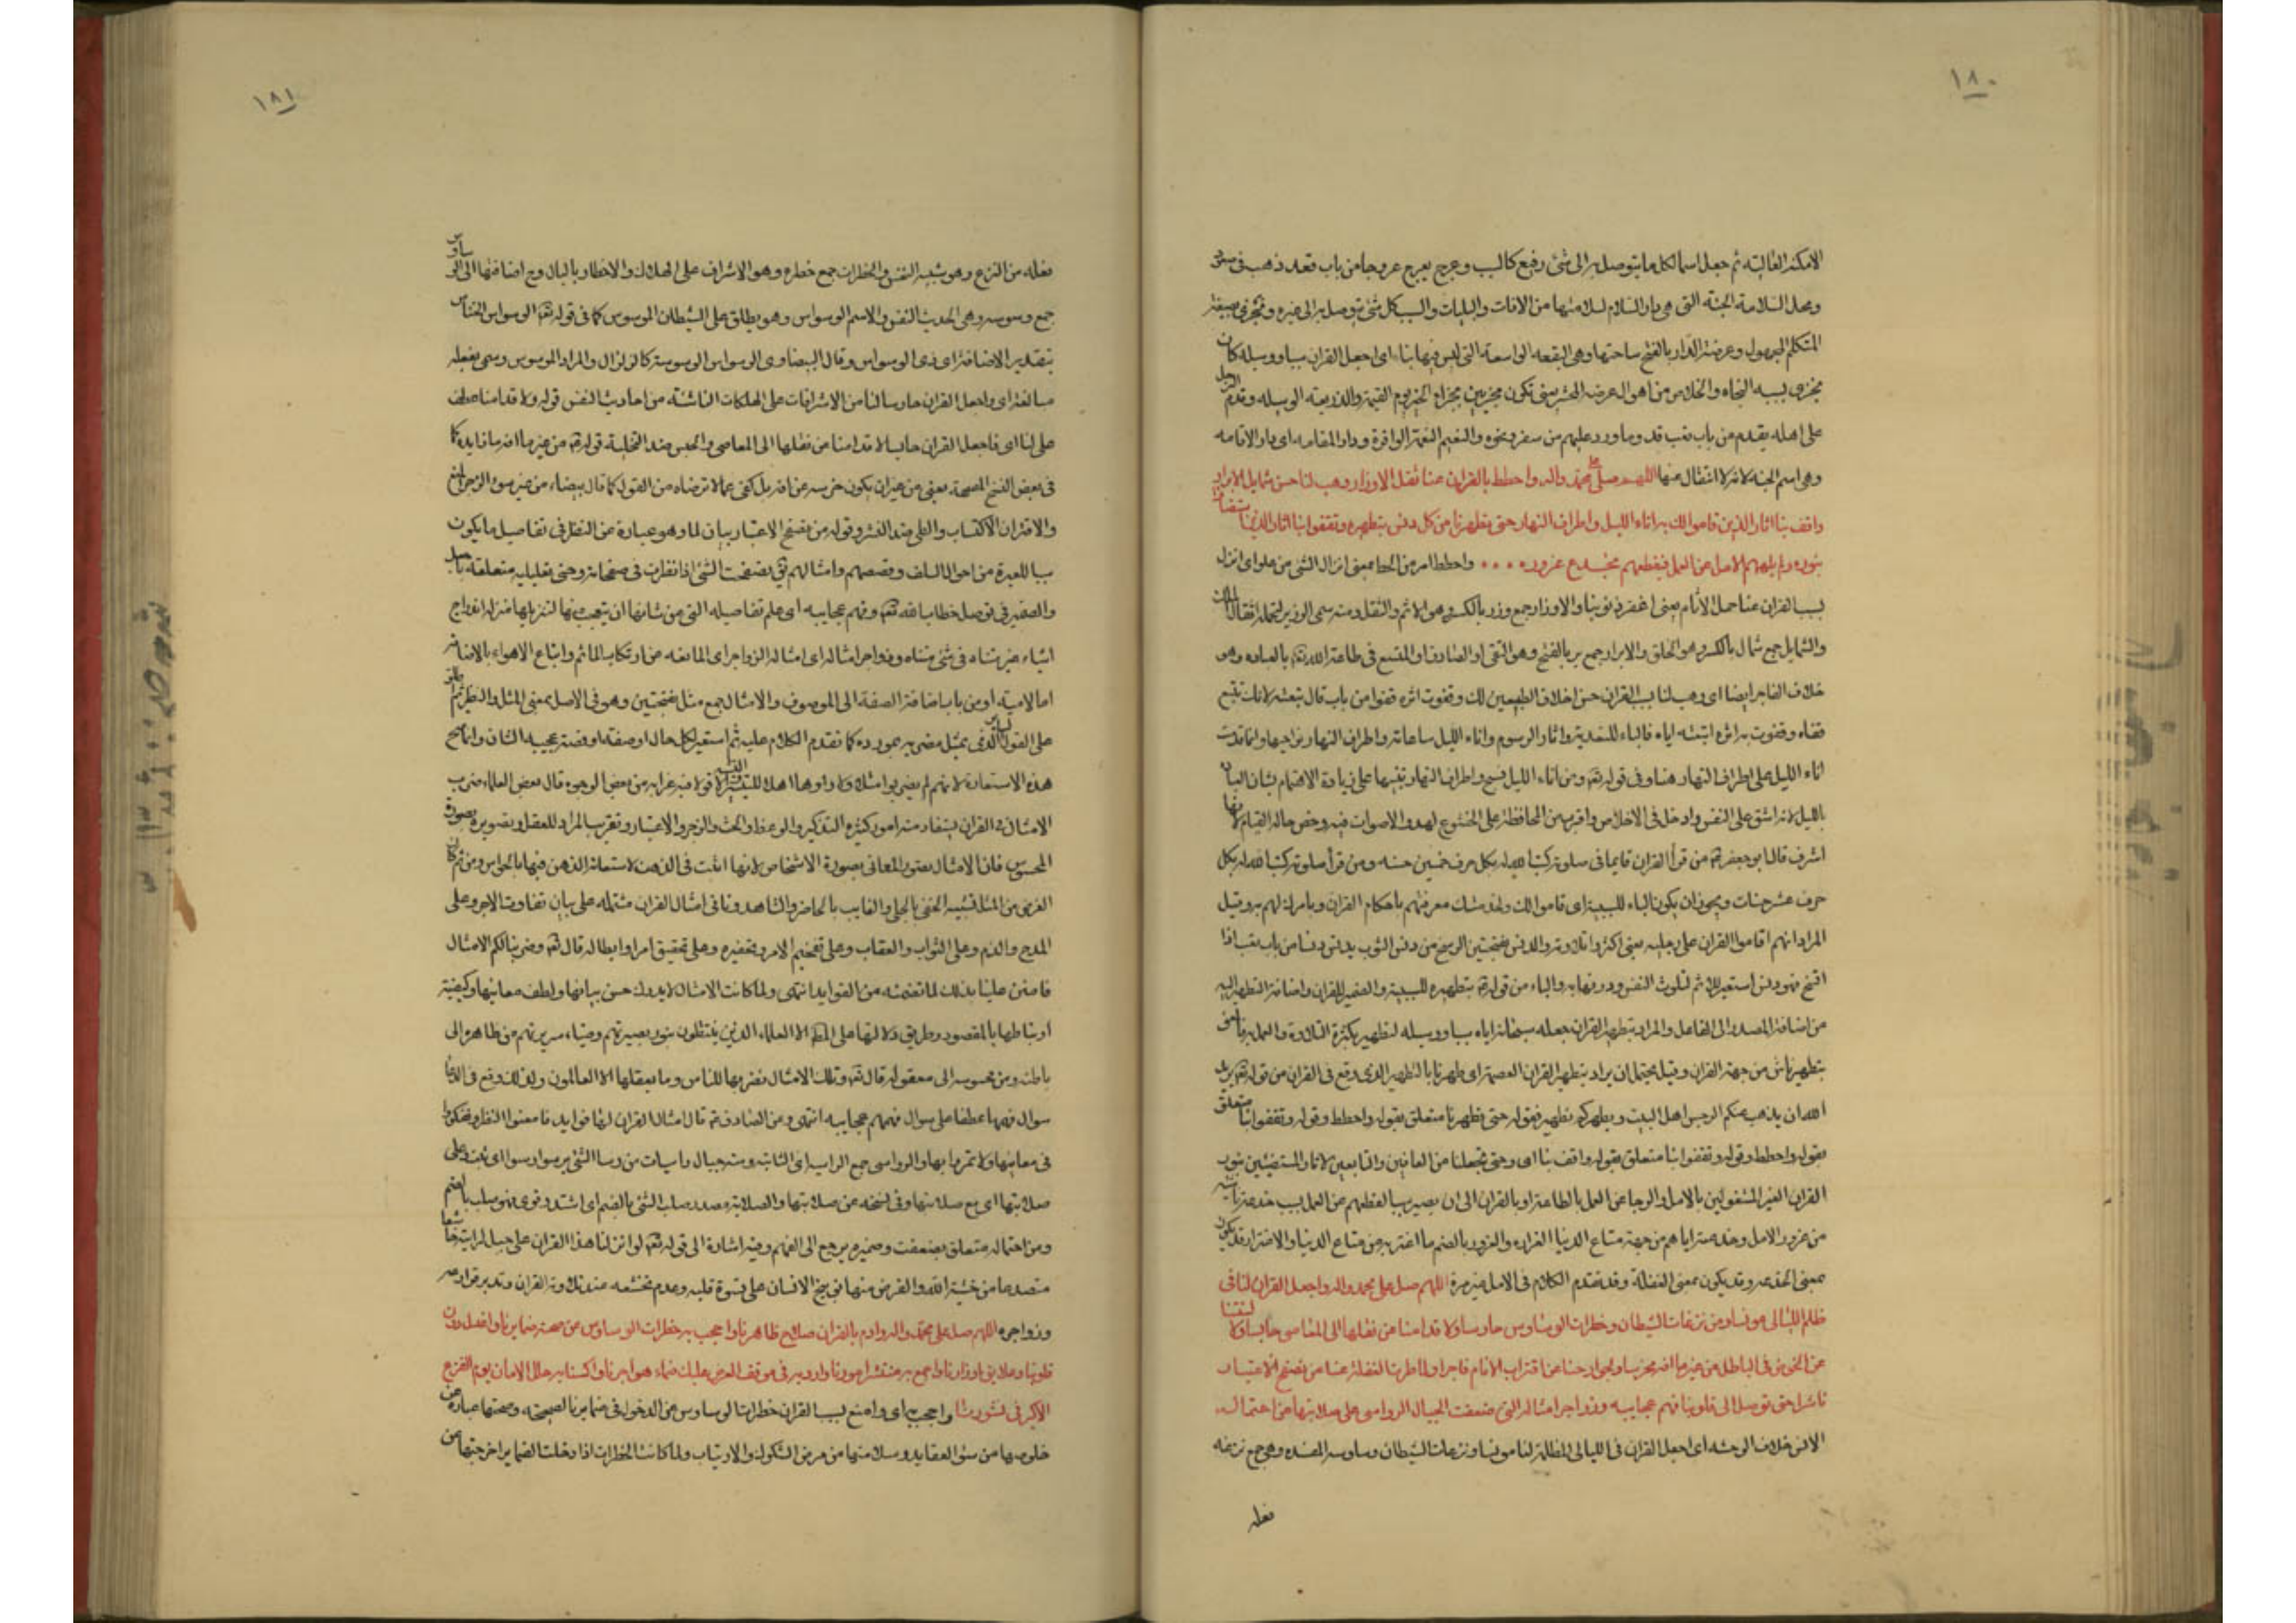 ١٨٠
الامكنة العالية ثم جعل اسما لكل ما يتوصل به الى شئ رفيع كالسبب وعرج يعرج عروجا من باب قعد ذهب في صعود
ومحل السلامة الجنة التى هى دار السلام لسلامتها من الافات والبليات والسبب كل شئ يتوصل به الى غيره ونجزى بصيغة
المتكلم المجهول وعرصة الدار بالفتح ساحتها وهى البقعة الواسعة التى ليس فيها بناء اى اجعل القران سببا ووسيلة كان
نجزى بسببه النجاه والخلاص من اهوال عرصة المحشر يعنى نكون مجزيين بجزاء الخير يوم القيمة والذريعة الوسيله وقدم الرجل
على اهله يقدم من باب تعب قد وما ورد عليهم من سفر ونحوه والنعيم النعمة الوافرة ودار المقامه اى دار الاقامه
وهى اسم الجنة لانه لا انتقال عنها اللهم صل على محمد واله واحطط بالقران عنا ثقل الاوزار وهب لنا حسن شمايل الابرار
واقف بنا اثار الذين قاموا لك به اناء الليل واطراف النهار حتى تطهرنا من كل دنس بتطهيره وتقفوا بنا اثار الذين استضاؤا
بنوره ولم يلههم الامل عن العمل فيقطعهم بخدع غروره واحطط امر من الحط بمعنى انزال الشئ من علو اى انزل
بسبب القران عنا حمل الأثام يعنى اغفر ذنوبنا والاوزار جمع وزر بالكسر وهو الاثم والثقل ومنه سمى الوزير لتحمله اثقال الملك
والشمايل جمع شمال بالكسر وهو الخلق والابرار جمع بر بالفتح وهو التقى او الصادق او المتسع فى طاعة الله تعه بالعباده وهو
خلاف الفاجر ايضا اى وهب لنا بسبب القران حسن اخلاق المطيعين لك وقفوت اثره قفوا من باب قال تبعته لانك تتبع
قفاه وقفوت به اثره اتبعته اياه فالباء للتعدية واثار الرسوم واناء الليل ساعاته واطراف النهار نواحيها وانما قدمت
اناء الليل على اطراف النهار هنا وفى قوله تعه ومن اناء الليل فسبح واطراف النهار تنبيها على زيادة الاهتمام بشان العبادة
بالليل لانه اشق على النفس وادخل فى الاخلاص واقرب من المحافظة على الخشوع لهدو الاصوات فيه وخص حالة القيام لانها
اشرف قال ابو جعفر ع من قرأ القران قايما فى صلوته كتب الله له بكل حرف خمسين حسنه ومن قرأ صلوته كتب الله له بكل
حرف عشر حسنات ويجوز ان يكون الباء للسببية اى قاموا لك ولخدمتك معرفتهم باحكام القران وبامرك لهم به وقيل
المراد انهم اقاموا القران على رجليه يعنى اكثروا تلاوته والدنس بفتحتين الوسخ من دنس الثوب يدنس دنسا من باب تعب اذا
اتسخ فهو دنس استعير للاثم لتلوث النفس ودرنها به والباء من قوله ع بتطهيره للسببية والضمير للقران واضافة التطهير اليه
من اضافة المصدر الى الفاعل والمراد بتطهير القران جعله سبحانه اياه سببا ووسيله لتطهير بكثرة التلاوة والعمل به
بتطهير ناش من جهة القران وقيل يحتمل ان يراد بتطهير القران العصمة اى طهرنا بالتطهير الذى وقع فى القران من قوله تعه يريد
الله ان يذهب عنكم الرجس اهل البيت ويطهركم تطهير فقوله حتى تطهرنا متعلق بقوله واحطط وقوله وتقفوا بنا متعلق
بقوله واحطط وقوله وتقفوا بنا متعلق بقوله واقف بنا اى وحتى تجعلنا من القافين والتابعين لاثار المستضيئين بنور
القران الغير المشغولين بالامل والرجا عن العمل بالطاعة او بالقران الى ان يصير سببا لقطعهم عن العمل بسبب خدعة ناشئه
من غرور الامل وخدعته اياهم من جهة متاع الدنيا الغراره والغرور بالضم ما اغتر به من متاع الدنيا والاغترار قد يكون
بمعنى الخدعه وقد يكون بمعنى الغفلة وقد تقدم الكلام فى الامل غير مرة اللهم صل على محمد واله واجعل القران لنا فى
ظلم الليالى مونسا ومن نزغات الشيطان وخطرات الوساوس حارسا ولا قدامنا من نقلها الى المعاصى حابسا ولالسنتنا
عن الخوض فى الباطل من غير ما افه مخرسا ولجوارحنا عن اقتراف الاثام زاجرا ولما طوت الغفلة عنا من تصفح الاعتبار
ناشرا حتى توصل الى قلوبنا فهم عجايبه وزواجر امثاله التى ضعفت الجبال الرواسى على صلابتها عن احتماله
الانس خلاف الوحشه اى اجعل القران فى الليالى المظلمة لنا مونسا ونزغات الشيطان وساوسه المفسده وهى جمع نزغه
فعله
١٨١
فعله من النزع وهو شبيه النخس والخطرات جمع خطره وهو الاشراف على الهلاك والاخطار بالبال وح اضافتها الى الوساوس
جمع وسوسه وهى الحديث النفس والاسم الوسواس وهو يطلق على الشيطان الموسوس كما فى قوله تعه الوسواس الخناس
بتقدير الاضافة اى ذى الوسواس وقال البيضاوى الوسواس الوسوسة كالزلزال والمراد الموسوس وسمى بفعله
مبالغة اى واجعل القران حارسا لنا من الاشرافات على الهلكات الناشئة من احاديث النفس قوله ولا قدامنا عطف
على لنا اى فاجعل القران حابسا لا قدامنا من نقلها الى المعاصى والحبس ضد التخلية قوله ع من غير ما افه ما زايده كما
فى بعض النسخ المصححة يعنى من غير ان يكون خرسه عن افه بل كفى عما لا ترضاه من القول كما قال بيضاء من غير سوء والزجر المنع
والاقتراف الاكتساب والطى ضد النشر وقوله من تصفح الاعتبار بيان لما وهو عبارة عن النظر فى تفاصيل ما يكون
سببا للعبرة من احوال السلف وقصصهم وامثالهم يق تصفحت الشئ اذا نظرت فى صفحاته وحتى تعليليه متعلقه
والضمير فى توصل خطاب الله تعه وفهم عجايبه اى علم تفاصيله التى من شانها ان يتعجب منها لتنزيلها منزله ازدواج
اشياء غير متناه فى شئ متناه وزواجر امثاله اى امثاله الزواجر اى المانعه عن ارتكاب الماثم واتباع الاهواء بالاضافه
اما لامية او من باب اضافة الصفة الى الموصوف والامثال جمع مثل بفتحتين وهو فى الاصل بمعنى المثل والنظير ثم
على القول السائر الذى يمثل مضربه بمورده كما تقدم الكلام عليه ثم استعير لكل حال او صفه او قصة عجيبة الشان وانما صح
هذه الاستعارة لانهم لم يضربوا مثلا ولا راوها اهلا للتسيير الا قولا فيه غرابه من بعض الوجوه قال بعض العلماء ضرب
الامثال فى القران يستفاد منه امور كثيرة التذكير والوعظ والحث والزجر والاعتبار وتقريب المراد للعقل وتصويره بصورة
المحسوس فان الامثال تصور المعانى بصورة الاشخاص لانها اثبت فى الذهن لاستعانة الذهن فيها بالحواس ومن ثم كان
الغرض من المثل تشبيه الخفى بالجلى والغايب بالحاضر والشاهد وتاتى امثال القران مشتمله على بيان تفاوت الاجر وعلى
المدح والذم وعلى الثواب والعقاب وعلى تفخيم الامر وتحقيره وعلى تحقيق امر او ابطاله قال تعه وضربنا لكم الامثال
فامتن علينا بذلك لما تضمنته من الفوايد انتهى ولما كانت الامثال لا يدرك حسن بيانها ولطف معانيها وكيفية
ارتباطها بالمقصود وطريق دلالتها على المط الا العلماء الذين ينتقلون بنور بصيرتهم وضياء سريرتهم من ظاهره الى
باطنه ومن محسوسه الى معقوله قال تعه وتلك الامثال نضربها للناس وما يعقلها الا العالمون ولذلك وقع فى الدعا
سوال فهمها عطفا على سوال فهمهم عجايبه انتهى وعن الصادق ع قال امثال القران لها فوايد فامعنوا النظر وتفكروا
فى معانيها ولا تمروا بها والرواسى جمع الراسيه اى الثابته ومنه جبال راسيات من رسا الشئ يرسوا رسوا اى ثبت وعلى
صلابتها اى مع صلابتها وفى نسخه عن صلابتها والصلابة مصدر صلب الشئ بالضم اى اشتد وقوى فهو صلب بالضم
ومن احتماله متعلق بضعفت وضميره يرجع الى الفهم وفيه اشارة الى قوله تعه لو انزلنا هذا القران على جبل لرايته خاشعا
متصدعا من خشية الله والغرض منها توبيخ الانسان على قسوة قلبه وعدم تخشعه عند تلاوته القران وتدبر قوارعه
وزواجره اللهم صل على محمد واله وادم بالقران صلاح ظاهرنا واحجب به خطرات الوساوس عن صحة ضمايرنا واغسل به درن
قلوبنا وعلايق اوزارنا واجمع به منتشر امورنا وارو به فى موقف العرض عليك ظماء هواجرنا واكسنا به حلل الامان يوم الفزع
الاكبر فى نشورنا واحجب به اى وامنع بسبب القران خطرات الوساوس عن الدخول فى ضمايرنا الصحيحة، وصحتها عبارة عن
خلوصها من سوء العقايد وسلامتها من مرض الشكوك والارتياب ولما كانت الخطرات اذا دخلت الضماير اخرجتها عن